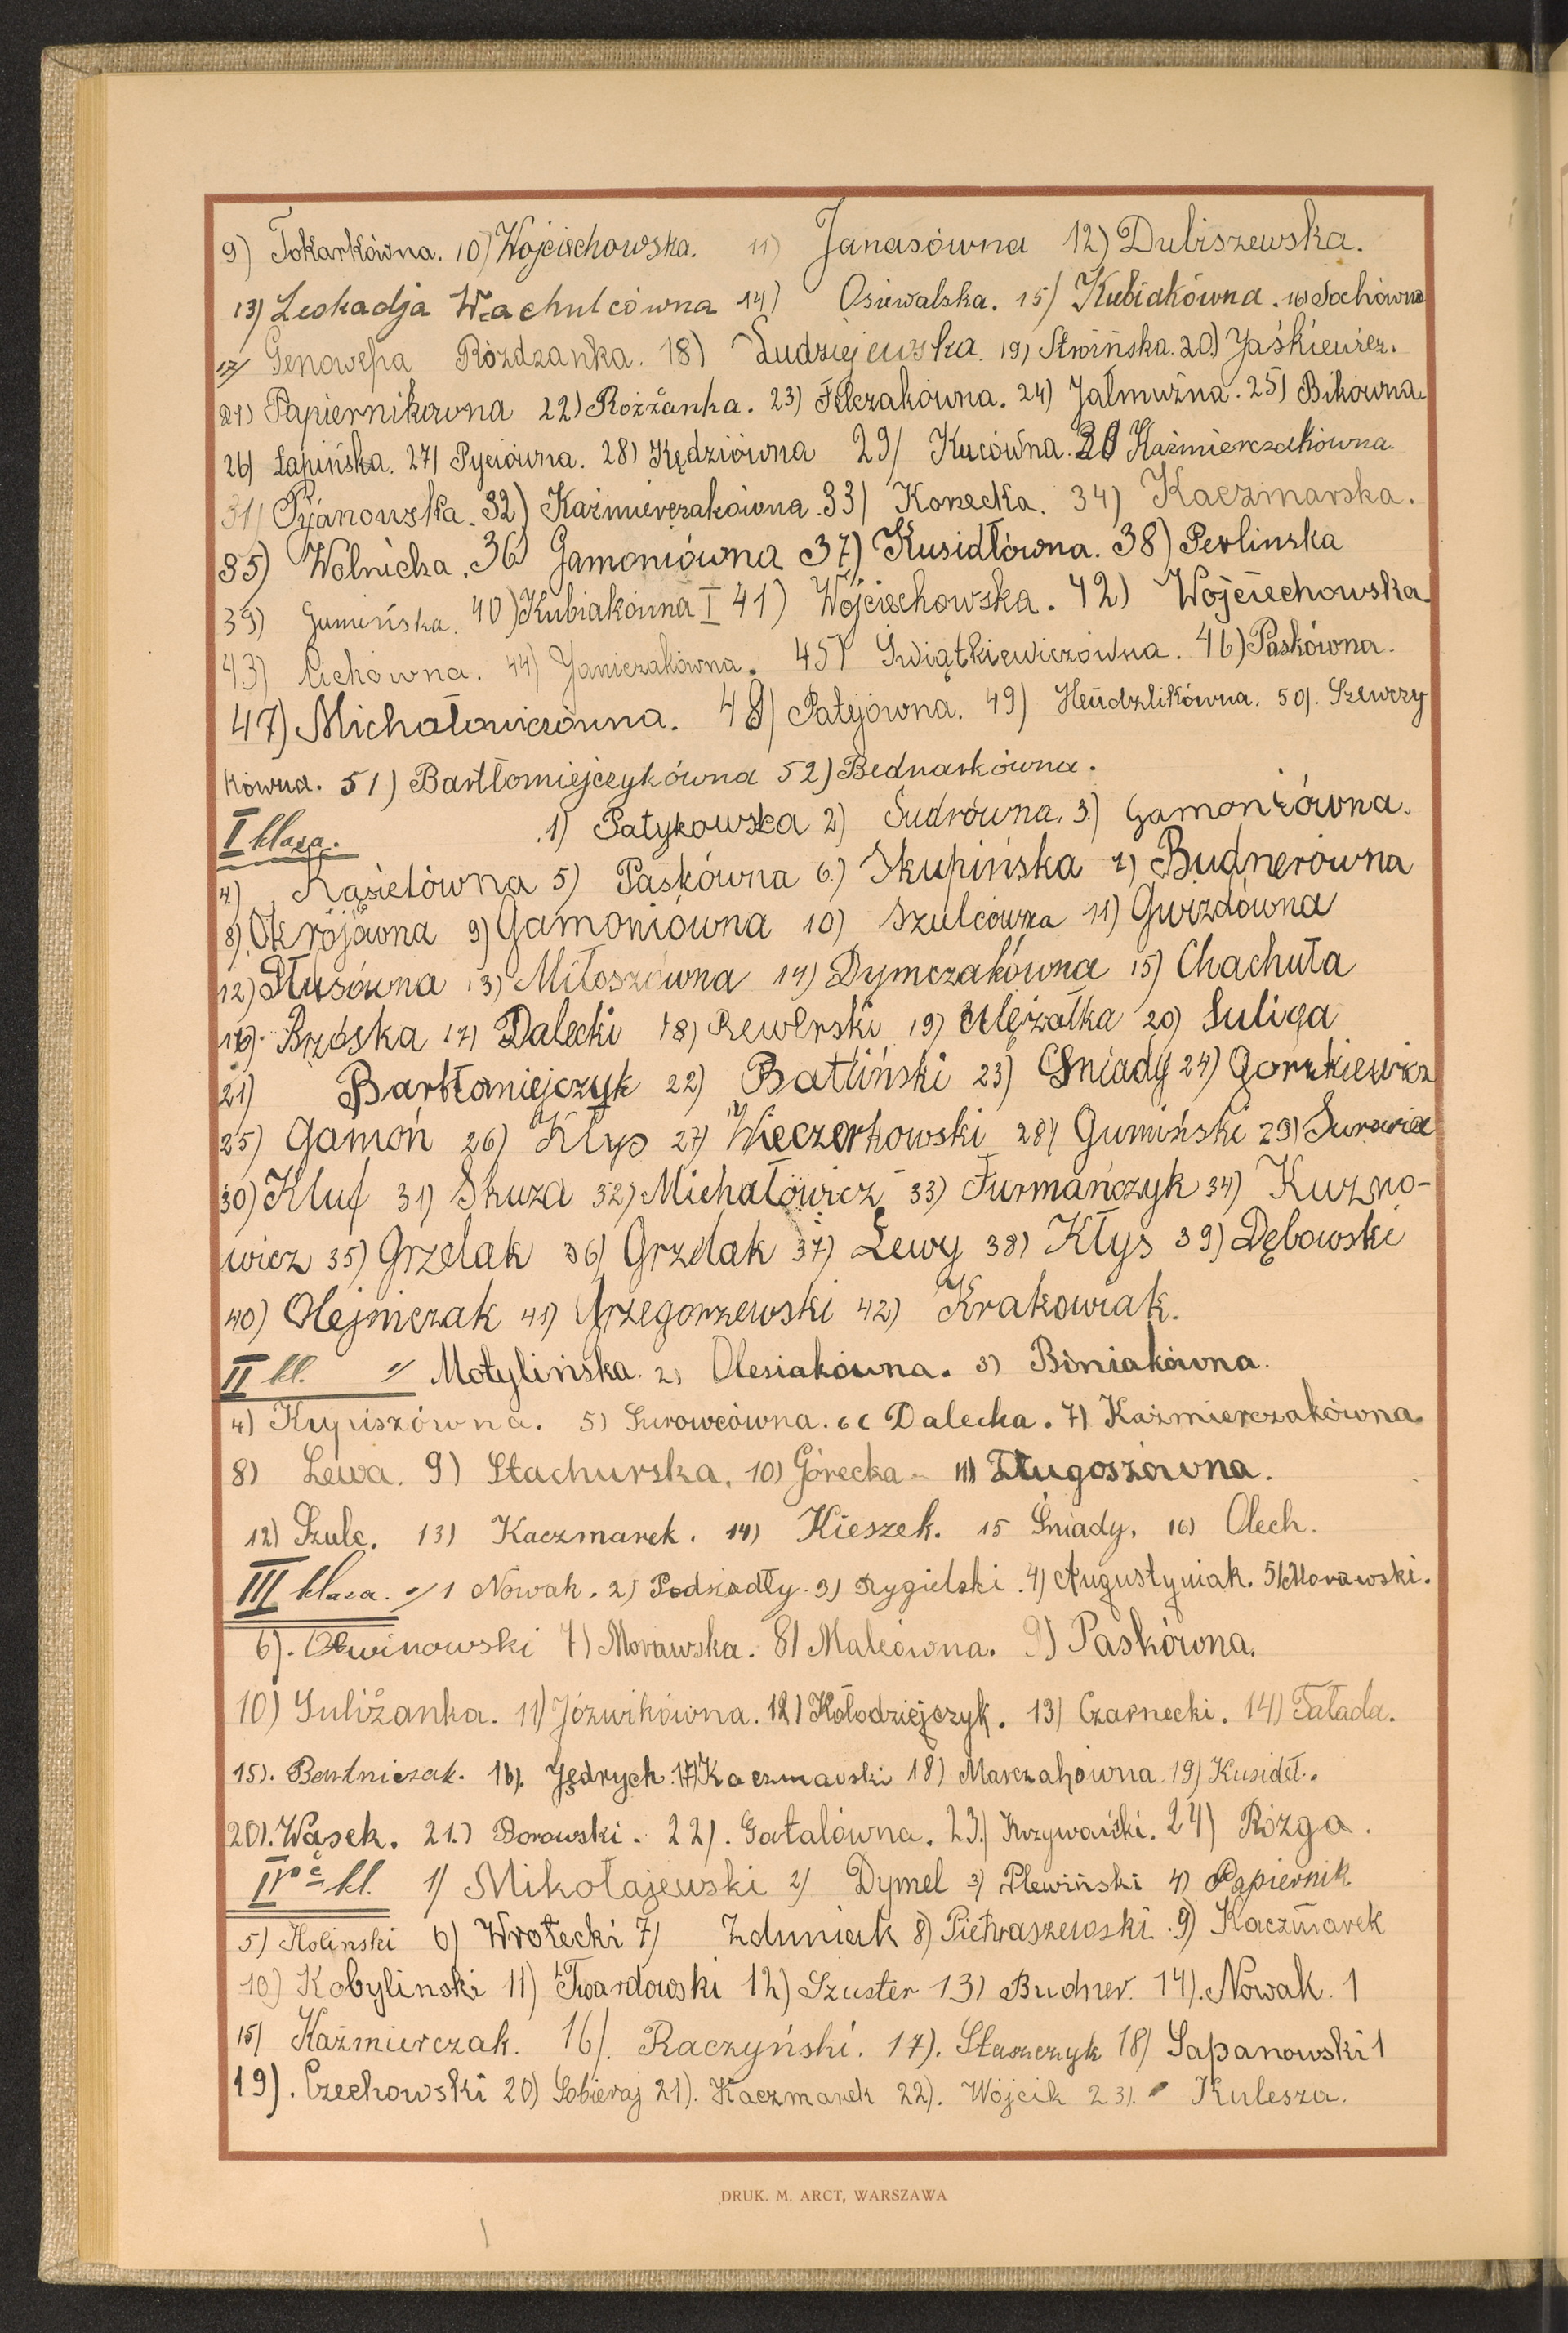 9) Tokarkówna. 10) Wojciechowska. 11) Janasówna 12) Dubiszewska.
13) Leokadja Wachulcówna 14) Osiewalska. 15) Kubiakówna. 16) Sochówna
17) Genowefa Rózdzanka. 18) Ludziejewska. 19) Stroińska. 20.) Jaśkiewicz.
21) Papiernikowna 22) Rozżanka. 23) Felczakówna. 24) Jałmużna. 25) Bikówna.
26) Łapińska. 27) Pyciówna. 28) Kędziówna 29) Kucówna. 30 Kaźmierczakówna.
31) Pyjanowska. 32) Kaźmierczakówna. 33) Konecka. 34) Kaczmarska.
35) Wólnicka. 36) Gamoniówna 37) Kusidłówna. 38) Perlinska
39) Gumińska. 40) Kubiakówna I 41) Wojciechowska. 42) Wojciechowska
43) Cichówna. 44) Janiczakówna. 45) Świątkiewiczówna. 46) Paskówna.
47) Michałowiczówna. 48) Patejówna. 49) Heudzlikówna. 50). Szewczy
kówna. 51) Bartłomiejczykówna 52) Bednarkówna.
I klasa. 1) Patykowska 2) Sudrówna. 3.) Gamoniówna.
4) Kąsielówna 5) Paskówna 6.) Skupińska 7) Budnerówna
8) Okrójówna 9) Gamoniówna 10) Szulcówna 11) Gwizdówna
12) Stusówna 13) Miłoszówna 14) Dymczakówna 15) Chachuła
16). Brzóska 17) Dalecki 18) Rewerski 19) Mężałka 20) Suliga
21) Bartłomiejczyk 22) Batliński 23) Śniady 24) Gorzkiewicz
25) Gamoń 26) Kłys 27) Wieczorkowski 28) Gumiński 29) Surowiec
30) Kluf 31) Skuza 32) Michałowicz 33) Furmańczyk 34) Kuzno-
wicz 35) Grzelak 36) Grzelak 37) Lewy 38) Kłys 39) Dębowski
40) Olejniczak 41) Grzegorzewski 42) Krakowiak.
II kl. 1) Motylińska. 2) Olesiakówna. 3) Biniakówna.
4) Krypiszówna. 5) Surowcówna. 6( Dalecka. 7) Kaźmierczakówna.
8) Lewa. 9) Stachurska. 10) Górecka - 11) Długoszówna.
12) Szulc. 13) Kaczmarek. 14) Kieszek. 15 Śniady. 16) Olech.
III klasa. 1 Nowak. 2) Podsiadły. 3) Rygielski. 4) Augustyniak. 5) Morawski.
6). Okwinowski 7) Morawska. 8) Malcówna. 9) Paskówna.
10) Suliżanka. 11) Jóźwikówna. 12) Kołodziejczyk. 13) Czarnecki. 14) Fałada.
15). Bartniczak. 16). Jędrych. 17) Kaczmarski 18) Marczakówna. 19) Kusideł.
20). Wąsek. 21.) Borowski. 22). Gatalówna. 23.) Krzywański. 24) Rózga.
IV kl. 1) Mikołajewski 2) Dymel 3) Plewiński 4) Papiernik
5) Holinski 6) Wrotecki 7) Zduniak 8) Pietraszewski. 9) Kaczmarek
10) Kobylinski 11) Twardowski 12) Szuster 13) Budner. 14). Nowak. 1
15) Kaźmierczak. 16). Raczyński. 17). Staszczyk 18) Sapanowski 1
19). Czechowski 20) Sobieraj 21). Kaczmarek 22). Wójcik 23). Kulesza.
DRUK. M. ARCT, WARSZAWA